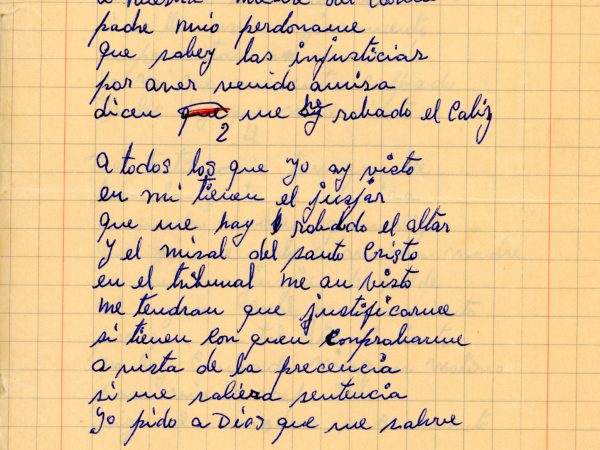 padre mio perdoname
que sabey las injusticiar
por aver venido amisa
dicen que me he robado el Caliz
2
a todos los que yo ay visto
en mi tienen el jusjar
que me hay robado el altar
y el misal del santo Cristo
en el tribunal me an visto
me tendran que justificarme
si tienen con quen comprobarme
a vista de la precencia
si me saliera sentencia
yo pido a Dios que me salve